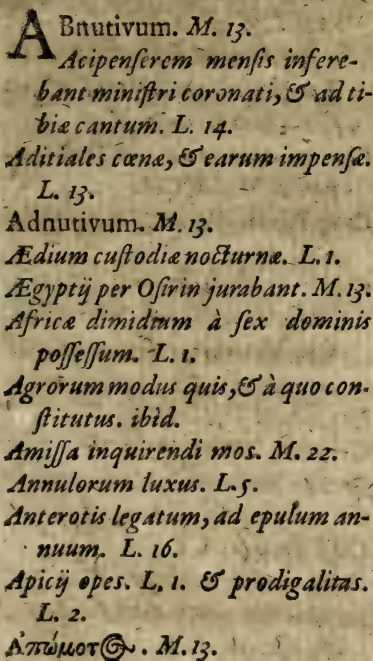 ABnutivum. M. 13.
Acipenſerem menſis infere-
bant miniſtri coronati, & ad ti-
biæ cantum. L. 14.
Aditiales cœnæ, & earum impenſæ.
L. 13.
Adnutivum. M. 13.
Ædium cuſtodiæ nocturnæ. L. 1.
Ægyptij per Oſirin jurabant. M. 13.
Africæ dimidium à ſex dominis
poſſeſſum. L. 1.
Agrorum modus quis, & à quo con-
ſtitutus. ibid.
Amiſſa inquirendi mos. M. 22.
Annulorum luxus. L. 5.
Anterotis legatum, ad epulum an-
nuum. L. 16.
Apicij opes. L. 1. & prodigalitas.
L. 2.
Ἀπώμοτος. M. 13.